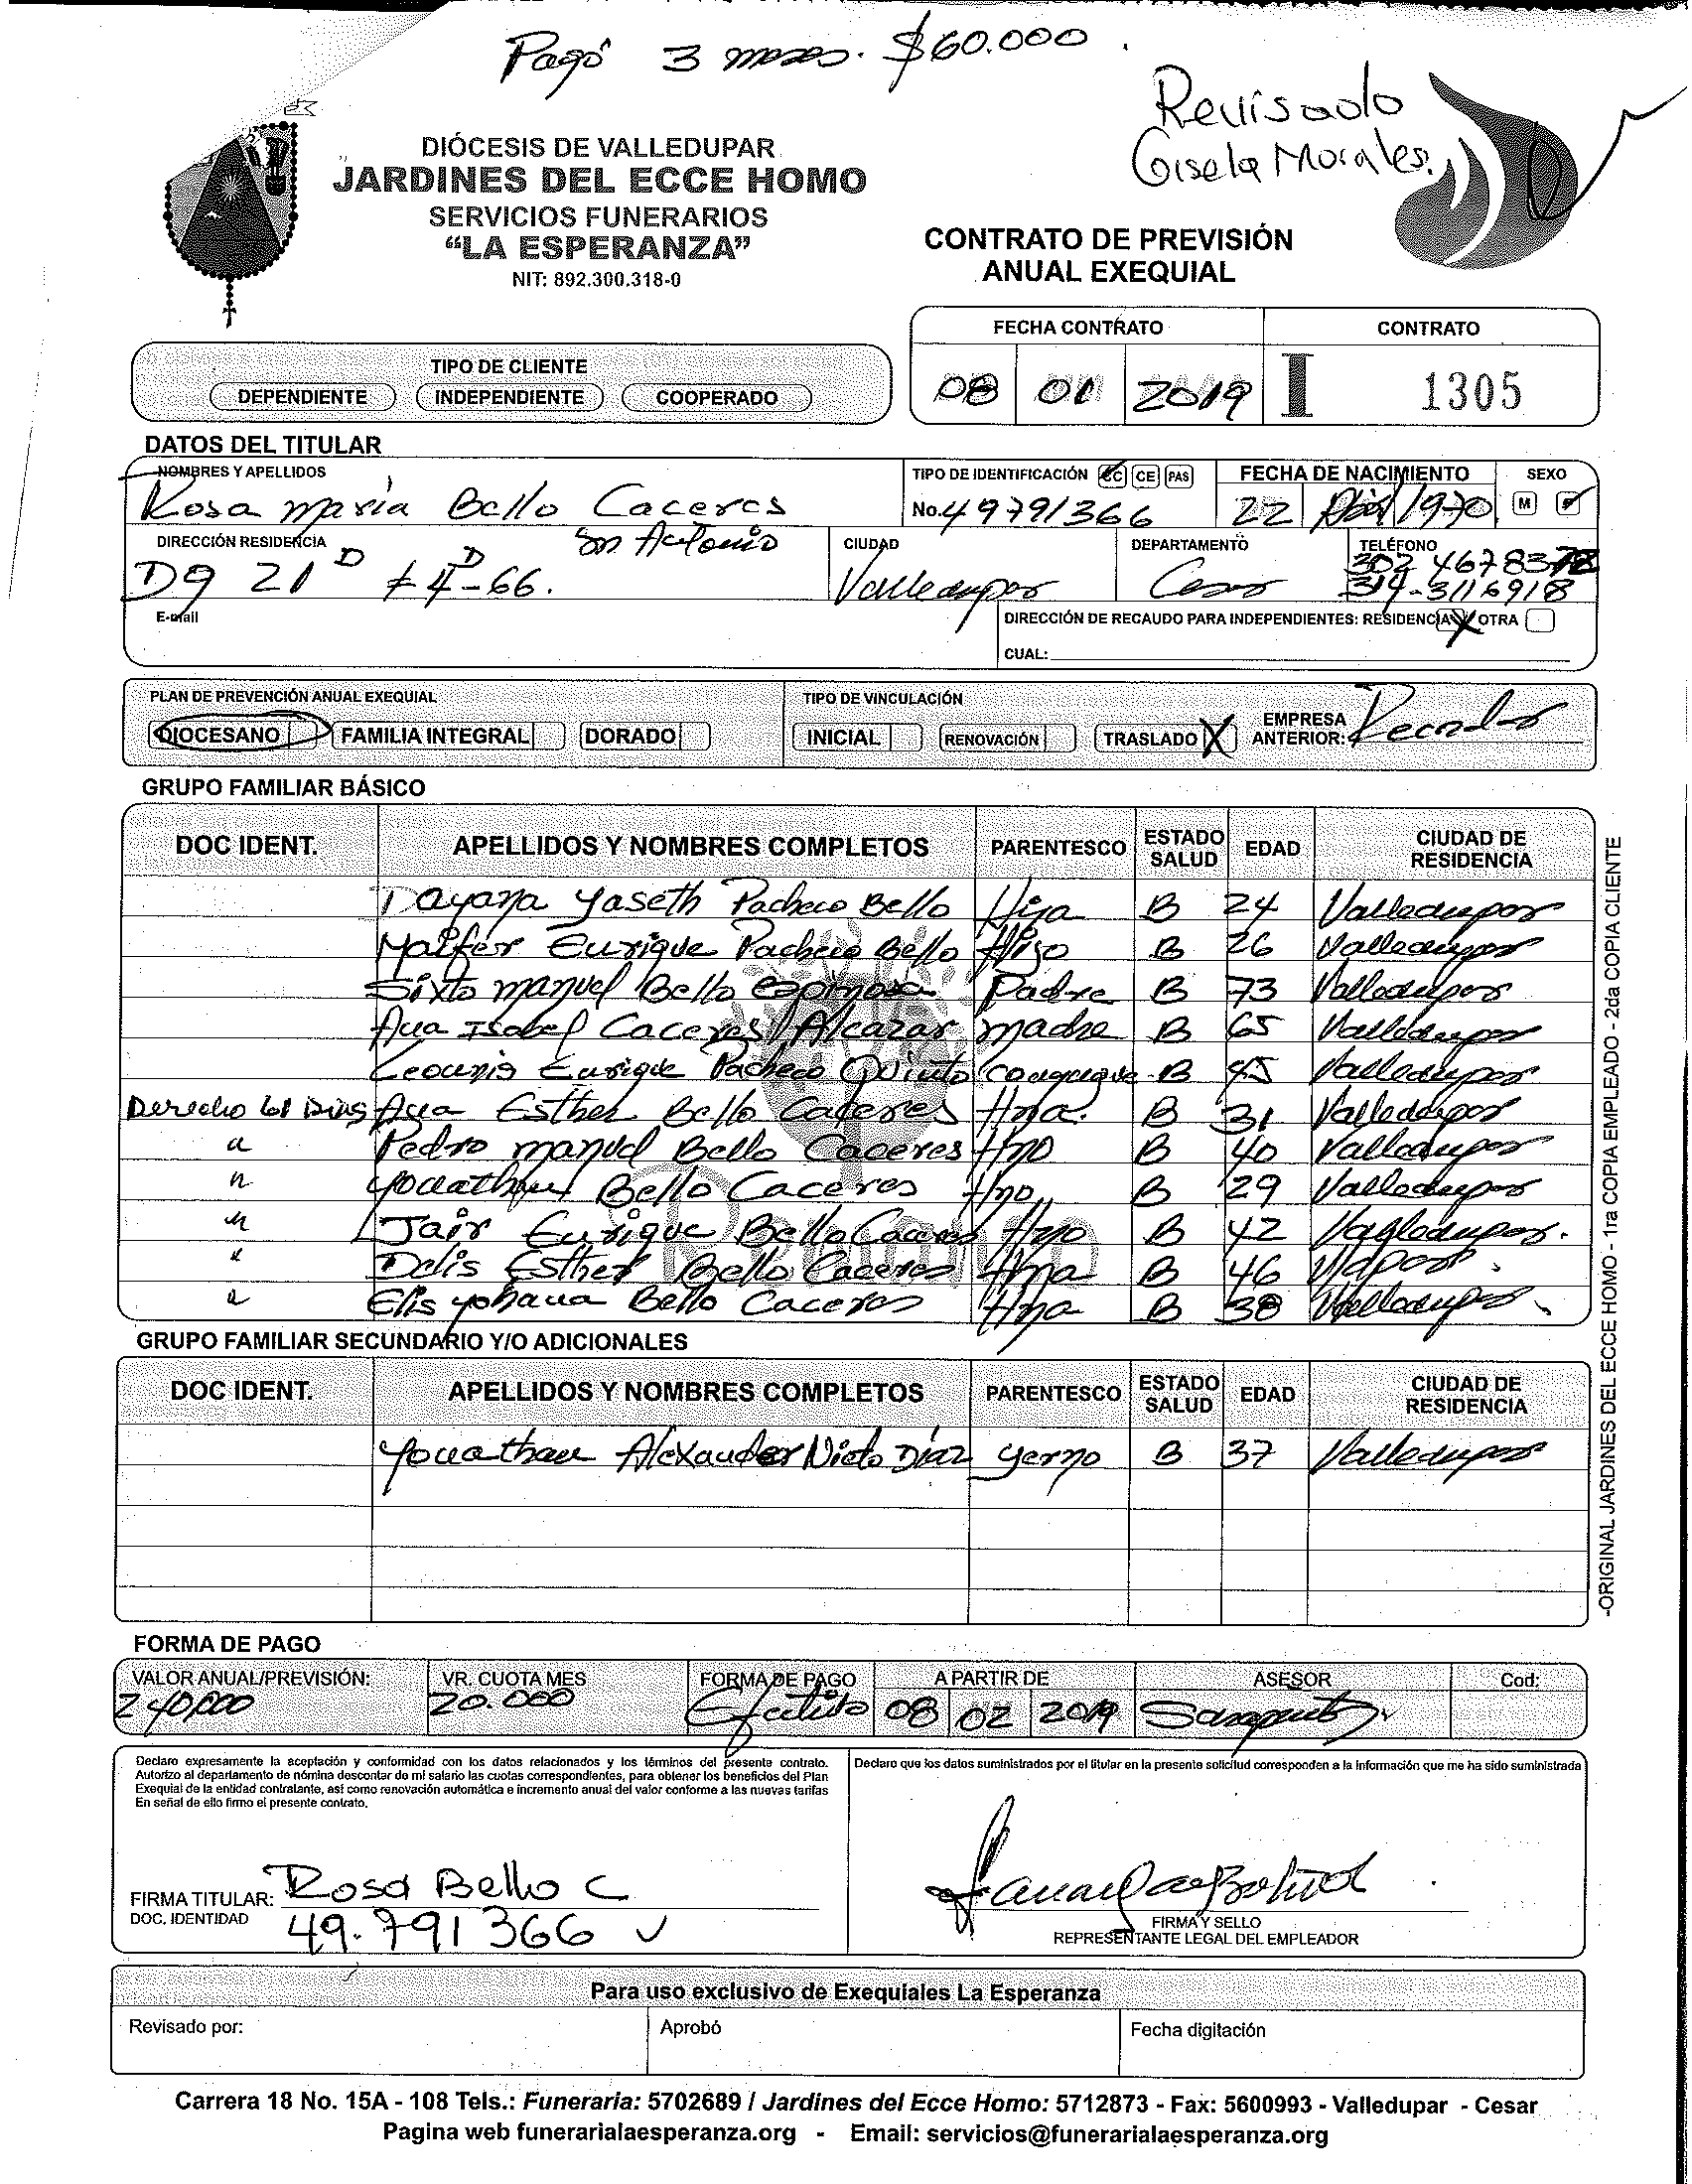 Pagó 3 meses. $60.000.
Revisado
Gisela Morales.
DIÓCESIS DE VALLEDUPAR
JARDINES DEL ECCE HOMO
SERVICIOS FUNERARIOS
“LA ESPERANZA”
NIT: 892.300.318-0
CONTRATO DE PREVISIÓN
ANUAL EXEQUIAL
FECHA CONTRATO CONTRATO
08 01 2019 I 1305
TIPO DE CLIENTE
DEPENDIENTE INDEPENDIENTE COOPERADO
DATOS DEL TITULAR
NOMBRES Y APELLIDOS TIPO DE IDENTIFICACIÓN CC CE PAS FECHA DE NACIMIENTO SEXO
Rosa maria Bello Caceres No. 49791366 22 Abril 1970 M F
DIRECCIÓN RESIDENCIA San Antonio CIUDAD DEPARTAMENTO TELÉFONO
302 4678372
Dg 21 D # 4D-66. Valledupar Cesar 314-3116918
E-mail DIRECCIÓN DE RECAUDO PARA INDEPENDIENTES: RESIDENCIA X OTRA
CUAL:
PLAN DE PREVENCIÓN ANUAL EXEQUIAL TIPO DE VINCULACIÓN
DIOCESANO FAMILIA INTEGRAL DORADO INICIAL RENOVACIÓN TRASLADO X EMPRESA ANTERIOR:
GRUPO FAMILIAR BÁSICO
DOC IDENT. APELLIDOS Y NOMBRES COMPLETOS PARENTESCO ESTADO SALUD EDAD CIUDAD DE RESIDENCIA
Dayana Yaseth Pacheco Bello Hija B 24 Valledupar
Maifer Enrique Pacheco Bello Hijo B 26 Valledupar
Sixto manuel Bello Espinosa Padre B 73 Valledupar
Ana Isabel Caceres Alcazar madre B 65 Valledupar
Leounis Enrique Pacheco Quinto Conyugue B 45 Valledupar
Derecho 61 Dias Ana Esther Bello Caceres Hna. B 31 Valledupar
" Pedro manuel Bello Caceres Hno B 40 Valledupar
" Yonathan Bello Caceres Hno B 29 Valledupar
" Jair Enrique Bello Caceres Hno B 42 Valledupar.
" Delis Esther Bello Caceres Hna B 46 V/dpar.
" Elis yohana Bello Caceres Hna B 38 Valledupar
GRUPO FAMILIAR SECUNDARIO Y/O ADICIONALES
DOC IDENT. APELLIDOS Y NOMBRES COMPLETOS PARENTESCO ESTADO SALUD EDAD CIUDAD DE RESIDENCIA
Yonathan Alexander Nieto Díaz yerno B 37 Valledupar
-ORIGINAL JARDINES DEL ECCE HOMO - 1ra COPIA EMPLEADO - 2da COPIA CLIENTE
FORMA DE PAGO
VALOR ANUAL/PREVISIÓN: VR. CUOTA MES FORMA DE PAGO A PARTIR DE ASESOR Cod:
240.000 20.000 Efectivo 08 02 2019
Declaro expresamente la aceptación y conformidad con los datos relacionados y los términos del presente contrato.
Autorizo al departamento de nómina descontar de mi salario las cuotas correspondientes, para obtener los beneficios del Plan
Exequial de la entidad contratante, así como renovación automática e incremento anual del valor conforme a las nuevas tarifas
En señal de ello firmo el presente contrato.
Declaro que los datos suministrados por el titular en la presente solicitud corresponden a la información que me ha sido suministrada
FIRMA TITULAR: Rosa Bello C
DOC. IDENTIDAD 49.791366
FIRMA Y SELLO
REPRESENTANTE LEGAL DEL EMPLEADOR
Para uso exclusivo de Exequiales La Esperanza
Revisado por: Aprobó Fecha digitación
Carrera 18 No. 15A - 108 Tels.: Funeraria: 5702689 / Jardines del Ecce Homo: 5712873 - Fax: 5600993 - Valledupar - Cesar
Pagina web funerarialaesperanza.org - Email: servicios@funerarialaesperanza.org